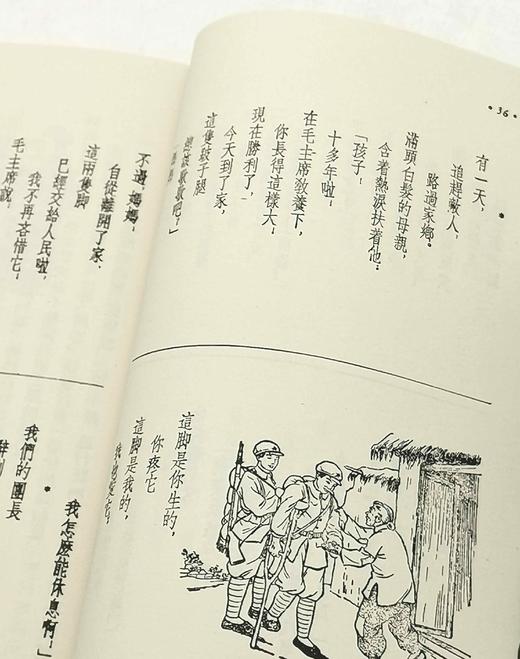 •36•
有一天，
追趕敵人，
路過家鄉。
滿頭白髮的母親，
含着熱淚扶着他：
「孩子！
十多年啦，
在毛主席教養下，
你長得這樣大！
現在勝利了，
今天到了家，
這隻跛子腿
這脚是你生的，
你疼它
這脚是我的，
不過，媽媽，
自從離開了家，
這兩隻脚
已經交給人民啦，
我不再吝惜它！
毛主席說：
我怎麼能休息啊！」
*
我們的團長